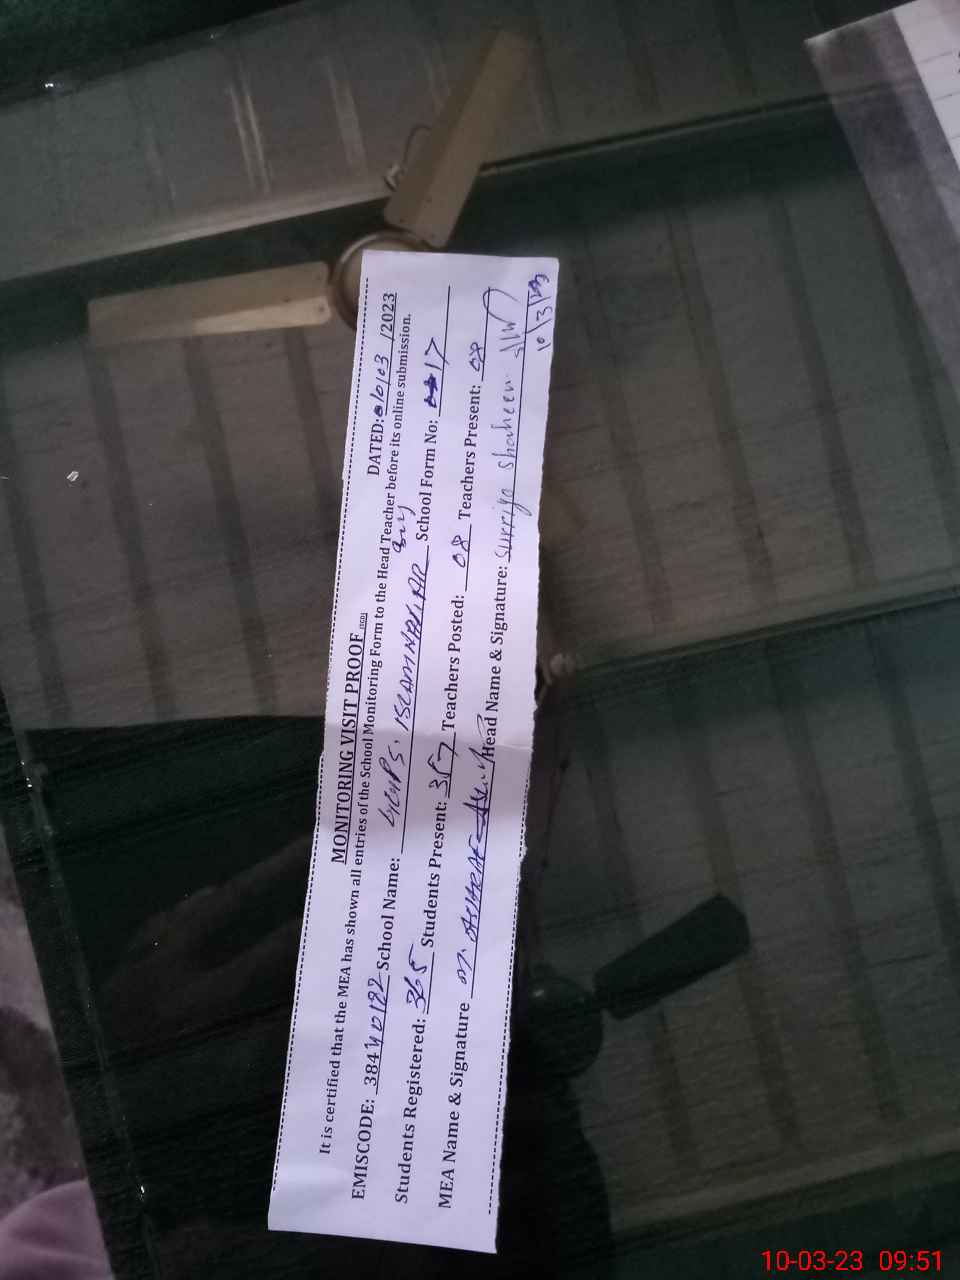 MONITORING VISIT PROOF
DATED: 10/03/2023
It is certified that the MEA has shown all entries of the School Monitoring Form to the Head Teacher before its online submission.
EMISCODE: 38440182 School Name: ISLAMNAGAR School Form No: 17
Students Registered: 365 Students Present: 357 Teachers Posted: 08 Teachers Present: 08
MEA Name & Signature M. ASHRAF Head Name & Signature: Surriya Shaheen
10/3/23
10-03-23 09:51